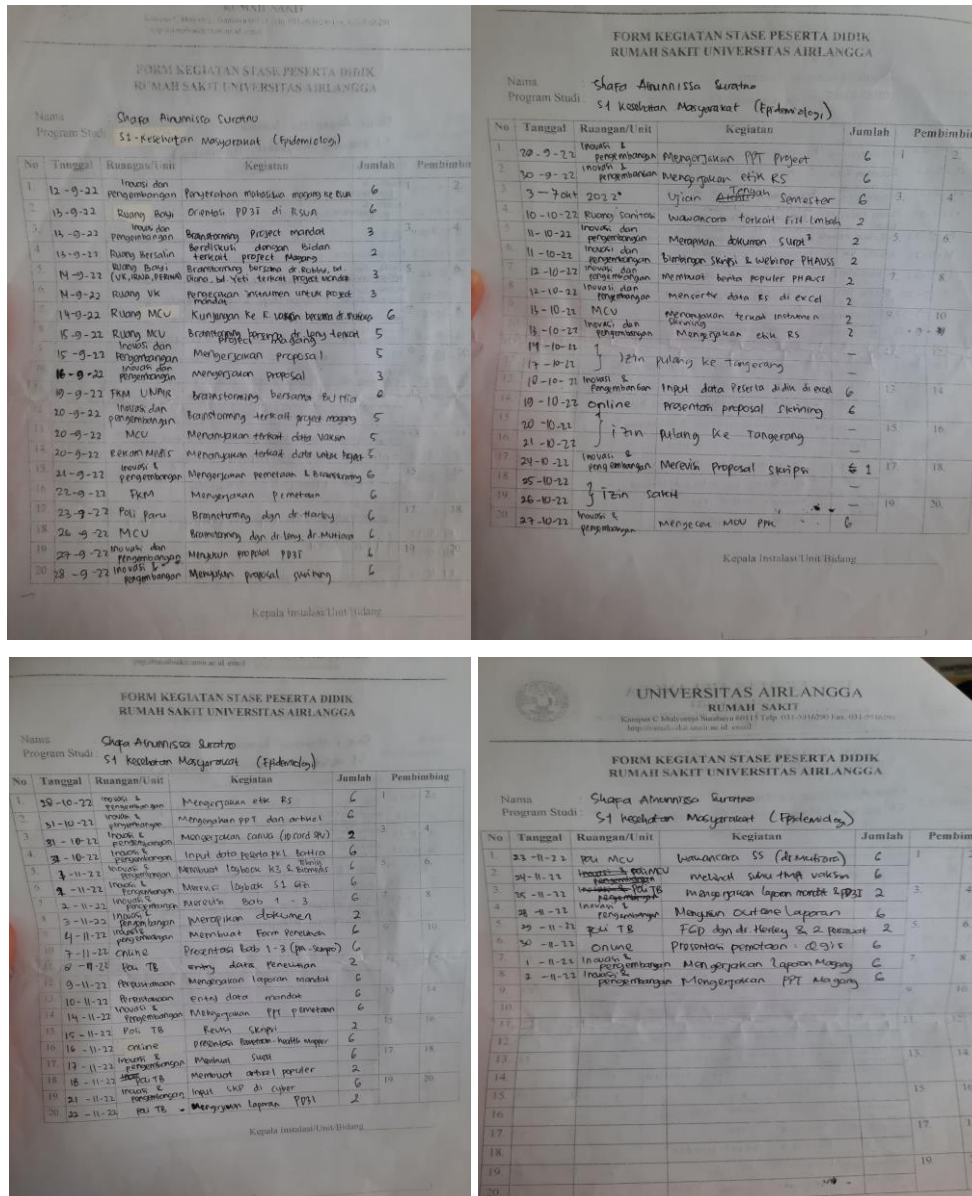 RUMAH SAKIT
FORM KEGIATAN STASE PESERTA DIDIK
RUMAH SAKIT UNIVERSITAS AIRLANGGA
Nama : Shafa Ainunnissa Suratno
Program Studi : S1-Kesehatan Masyarakat (Epidemiologi)
No Tanggal Ruangan/Unit Kegiatan Jumlah Pembimbing
1. 12-9-22 Inovasi dan pengembangan Penyerahan mahasiswa magang ke RSUA 6
13-9-22 Ruang Bayi Orientasi PD3I di RSUA 6
13-9-22 Inovasi dan pengembangan Brainstorming Project mandat 3
13-9-22 Ruang Bersalin Berdiskusi dengan Bidan terkait project Magang 2
14-9-22 Ruang Bayi (VK, IRNA, PERINA) Brainstorming bersama dr. bd. Diana, bd. Yeti terkait Project Mandat 3
14-9-22 Ruang VK Pengerjaan instrumen untuk project mandat 3
14-9-22 Ruang MCU Kunjungan ke R. vaksin bersama dr. Mutiara 6
15-9-22 Ruang MCU Brainstorming bersama dr. Leny terkait project magang 5
15-9-22 Inovasi dan Pengembangan Mengerjakan proposal 5
16-9-22 Inovasi dan pengembangan mengerjakan proposal 3
19-9-22 FKM UNAIR Brainstorming bersama Bu Tia 6
20-9-22 Inovasi dan pengembangan Brainstorming terkait project magang 5
20-9-22 MCU Menanyakan terkait data Vaksin 5
20-9-22 Rekam Medis Menanyakan terkait data untuk 5
21-9-22 Inovasi & pengembangan Mengerjakan pemetaan & Brainstorming 6
22-9-22 FKM Mengerjakan pemetaan 6
17. 23-9-22 Poli Paru Brainstorming dgn dr. Harley 6
18. 26-9-22 MCU Brainstorming dgn dr. Leny, dr. Mutiara 6
19. 27-9-22 Inovasi dan pengembangan Menyusun proposal PD3I 6
20. 28-9-22 Inovasi & pengembangan Menyusun proposal skrining 6
Kepala Instalasi/Unit/Bidang
FORM KEGIATAN STASE PESERTA DIDIK
RUMAH SAKIT UNIVERSITAS AIRLANGGA
Nama : Shafa Ainunnissa Suratno
Program Studi : S1 Kesehatan Masyarakat (Epidemiologi)
No Tanggal Ruangan/Unit Kegiatan Jumlah Pembimbing
1. 29-9-22 Inovasi & pengembangan Mengerjakan PPT Project 6
30-9-22 Inovasi & pengembangan Mengerjakan etik RS 6
3 - 7 okt 2022 Ujian Tengah Semester 6
10-10-22 Ruang Sanitasi Wawancara terkait limbah 2
11-10-22 Inovasi dan pengembangan Merapikan dokumen surat² 2
11-10-22 Inovasi dan pengembangan bimbingan skripsi & webinar PHAUSS 2
12-10-22 Inovasi dan pengembangan membuat berita populer 2
12-10-22 Inovasi dan Pengembangan Mensortir data RS di excel 2
13-10-22 MCU menanyakan terkait instrumen skrining 2
13-10-22 Inovasi dan pengembangan Mengerjakan etik RS 2
14-10-22
17-10-22 } izin pulang ke Tangerang -
18-10-22 Inovasi & Pengembangan Input data Peserta didik di excel 6
19-10-22 online Presentasi proposal skrining 6
20-10-22
21-10-22 } izin pulang ke Tangerang -
24-10-22 Inovasi & pengembangan Merevisi Proposal skripsi 1
25-10-22
26-10-22 } Izin sakit -
27-10-22 Inovasi & pengembangan Mengecek MOU PPK 6
Kepala Instalasi/Unit/Bidang
FORM KEGIATAN STASE PESERTA DIDIK
RUMAH SAKIT UNIVERSITAS AIRLANGGA
Nama : Shafa Ainunnissa Suratno
Program Studi : S1 Kesehatan Masyarakat (Epidemiologi)
No Tanggal Ruangan/Unit Kegiatan Jumlah Pembimbing
1. 28-10-22 Inovasi & Pengembangan Mengerjakan etik RS 6
2. 31-10-22 Inovasi & pengembangan Mengerjakan PPT dan artikel 6
3. 31-10-22 Inovasi & Pengembangan Mengerjakan canva (ID card) 2
4. 31-10-22 Inovasi & Pengembangan Input data peserta PKL Battra 6
-11-22 Inovasi & Pengembangan Membuat logbook K3 & Teknik Biomedis 6
-11-22 Inovasi & Pengembangan Merevisi logbook S1 Gizi 6
2-11-22 Inovasi & Pengembangan Merevisi Bab 1-3 6
3-11-22 Inovasi & pengembangan Merapikan dokumen 2
4-11-22 Inovasi & pengembangan Membuat Form Penelitian 6
7-11-22 Online Presentasi Bab 1-3 (pra-sempro) 6
8-11-22 Poli TB entry data penelitian 2
9-11-22 Perpustakaan Mengerjakan laporan mandat 6
10-11-22 Perpustakaan entry data mandat 6
14-11-22 Inovasi & Pengembangan Mengerjakan PPT pemetaan 6
15-11-22 Poli TB Revisi skripsi 2
16. 16-11-22 online presentasi Pemetaan - health mapper 6
17. 17-11-22 Inovasi & pengembangan Membuat Surat 6
18. 18-11-22 Poli TB Membuat artikel populer 2
19. 21-11-22 Inovasi & pengembangan Input SKP di cyber 6
20. 22-11-22 Poli TB Mengerjakan laporan PD3I 2
Kepala Instalasi/Unit/Bidang
UNIVERSITAS AIRLANGGA
RUMAH SAKIT
Kampus C Mulyorejo Surabaya 60115 Telp. 031-5916290 Fax. 031-5916291
FORM KEGIATAN STASE PESERTA DIDIK
RUMAH SAKIT UNIVERSITAS AIRLANGGA
Nama : Shafa Ainunnissa Suratno
Program Studi : S1 Kesehatan Masyarakat (Epidemiologi)
No Tanggal Ruangan/Unit Kegiatan Jumlah Pembim
1. 23-11-22 Poli MCU Wawancara SS (dr Mutiara) 6
24-11-22 Poli MCU melihat suhu tmp vaksin 6
25-11-22 Poli TB mengerjakan laporan mandat & PD3I 2
28-11-22 Inovasi & Pengembangan Menyusun outline laporan 6
29-11-22 Poli TB FGD dgn dr. Herley & 2 perawat 2
30-11-22 Online Presentasi pemetaan : Qgis 6
1-11-22 Inovasi & pengembangan Mengerjakan Laporan Magang 6
2-11-22 Inovasi & pengembangan Mengerjakan PPT Magang 6
9.
10.
11.
12.
13.
14.
15.
16.
17.
18.
19.
20.